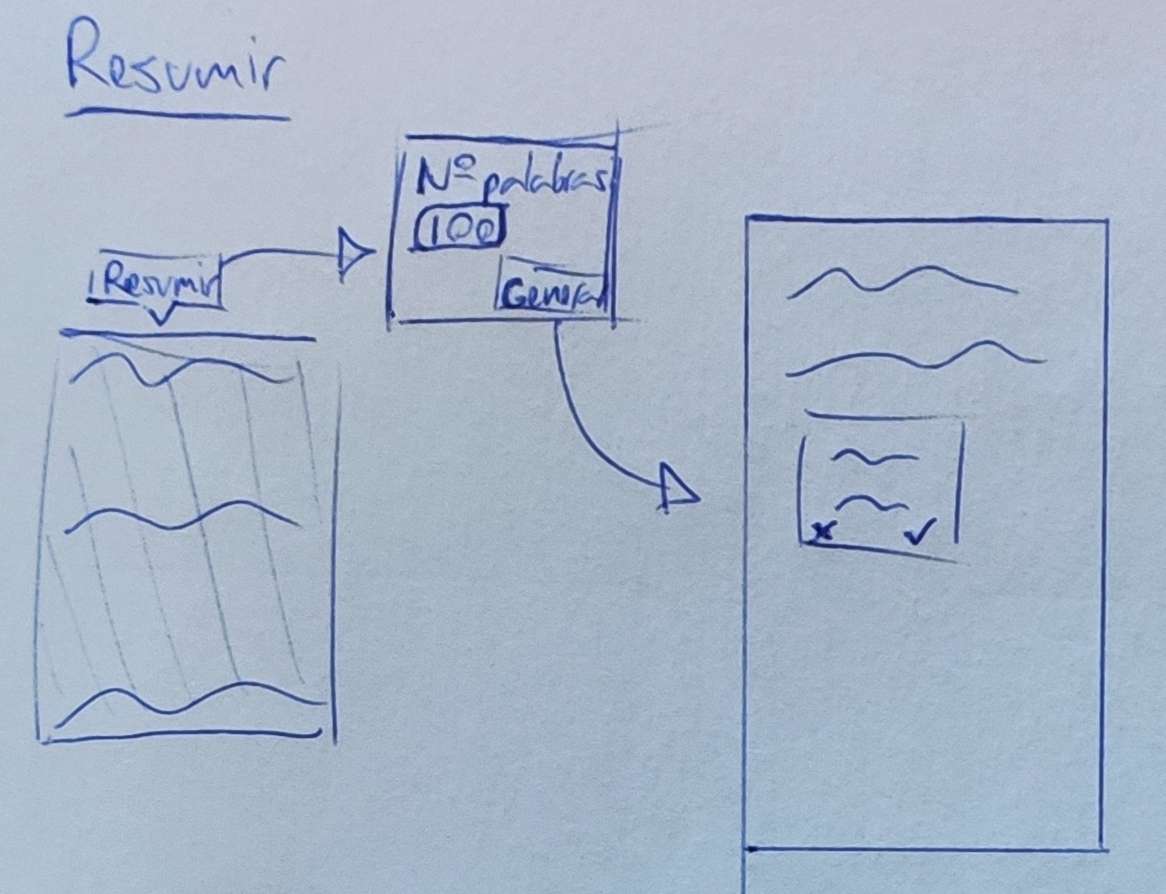 Resumir
Resumir
Nº palabras
100
Generar